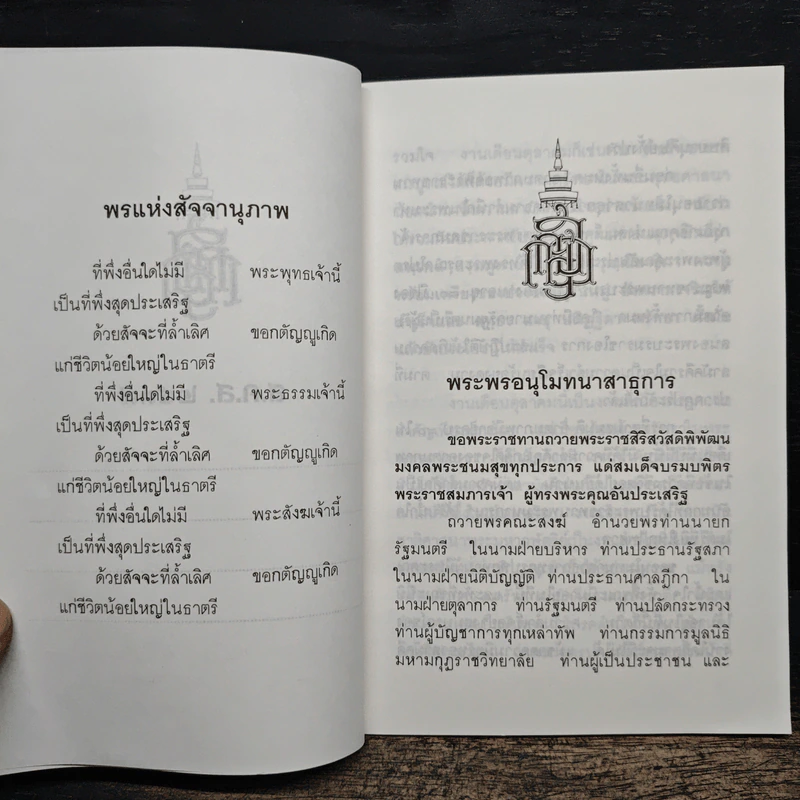 พรแห่งสัจจานุภาพ
ที่พึ่งอื่นใดไม่มี พระพุทธเจ้านี้
เป็นที่พึ่งสุดประเสริฐ
ด้วยสัจจะที่ล้ำเลิศ ขอกตัญญูเกิด
แก่ชีวิตน้อยใหญ่ในธาตรี
ที่พึ่งอื่นใดไม่มี พระธรรมเจ้านี้
เป็นที่พึ่งสุดประเสริฐ
ด้วยสัจจะที่ล้ำเลิศ ขอกตัญญูเกิด
แก่ชีวิตน้อยใหญ่ในธาตรี
ที่พึ่งอื่นใดไม่มี พระสังฆเจ้านี้
เป็นที่พึ่งสุดประเสริฐ
ด้วยสัจจะที่ล้ำเลิศ ขอกตัญญูเกิด
แก่ชีวิตน้อยใหญ่ในธาตรี
พระพรอนุโมทนาสาธุการ
ขอพระราชทานถวายพระราชสิริสวัสดิพิพัฒน
มงคลพระชนมสุขทุกประการ แด่สมเด็จบรมบพิตร
พระราชสมภารเจ้า ผู้ทรงพระคุณอันประเสริฐ
ถวายพรคณะสงฆ์ อำนวยพรท่านนายก
รัฐมนตรี ในนามฝ่ายบริหาร ท่านประธานรัฐสภา
ในนามฝ่ายนิติบัญญัติ ท่านประธานศาลฎีกา ใน
นามฝ่ายตุลาการ ท่านรัฐมนตรี ท่านปลัดกระทรวง
ท่านผู้บัญชาการทุกเหล่าทัพ ท่านกรรมการมูลนิธิ
มหามกุฏราชวิทยาลัย ท่านผู้เป็นประชาชน และ